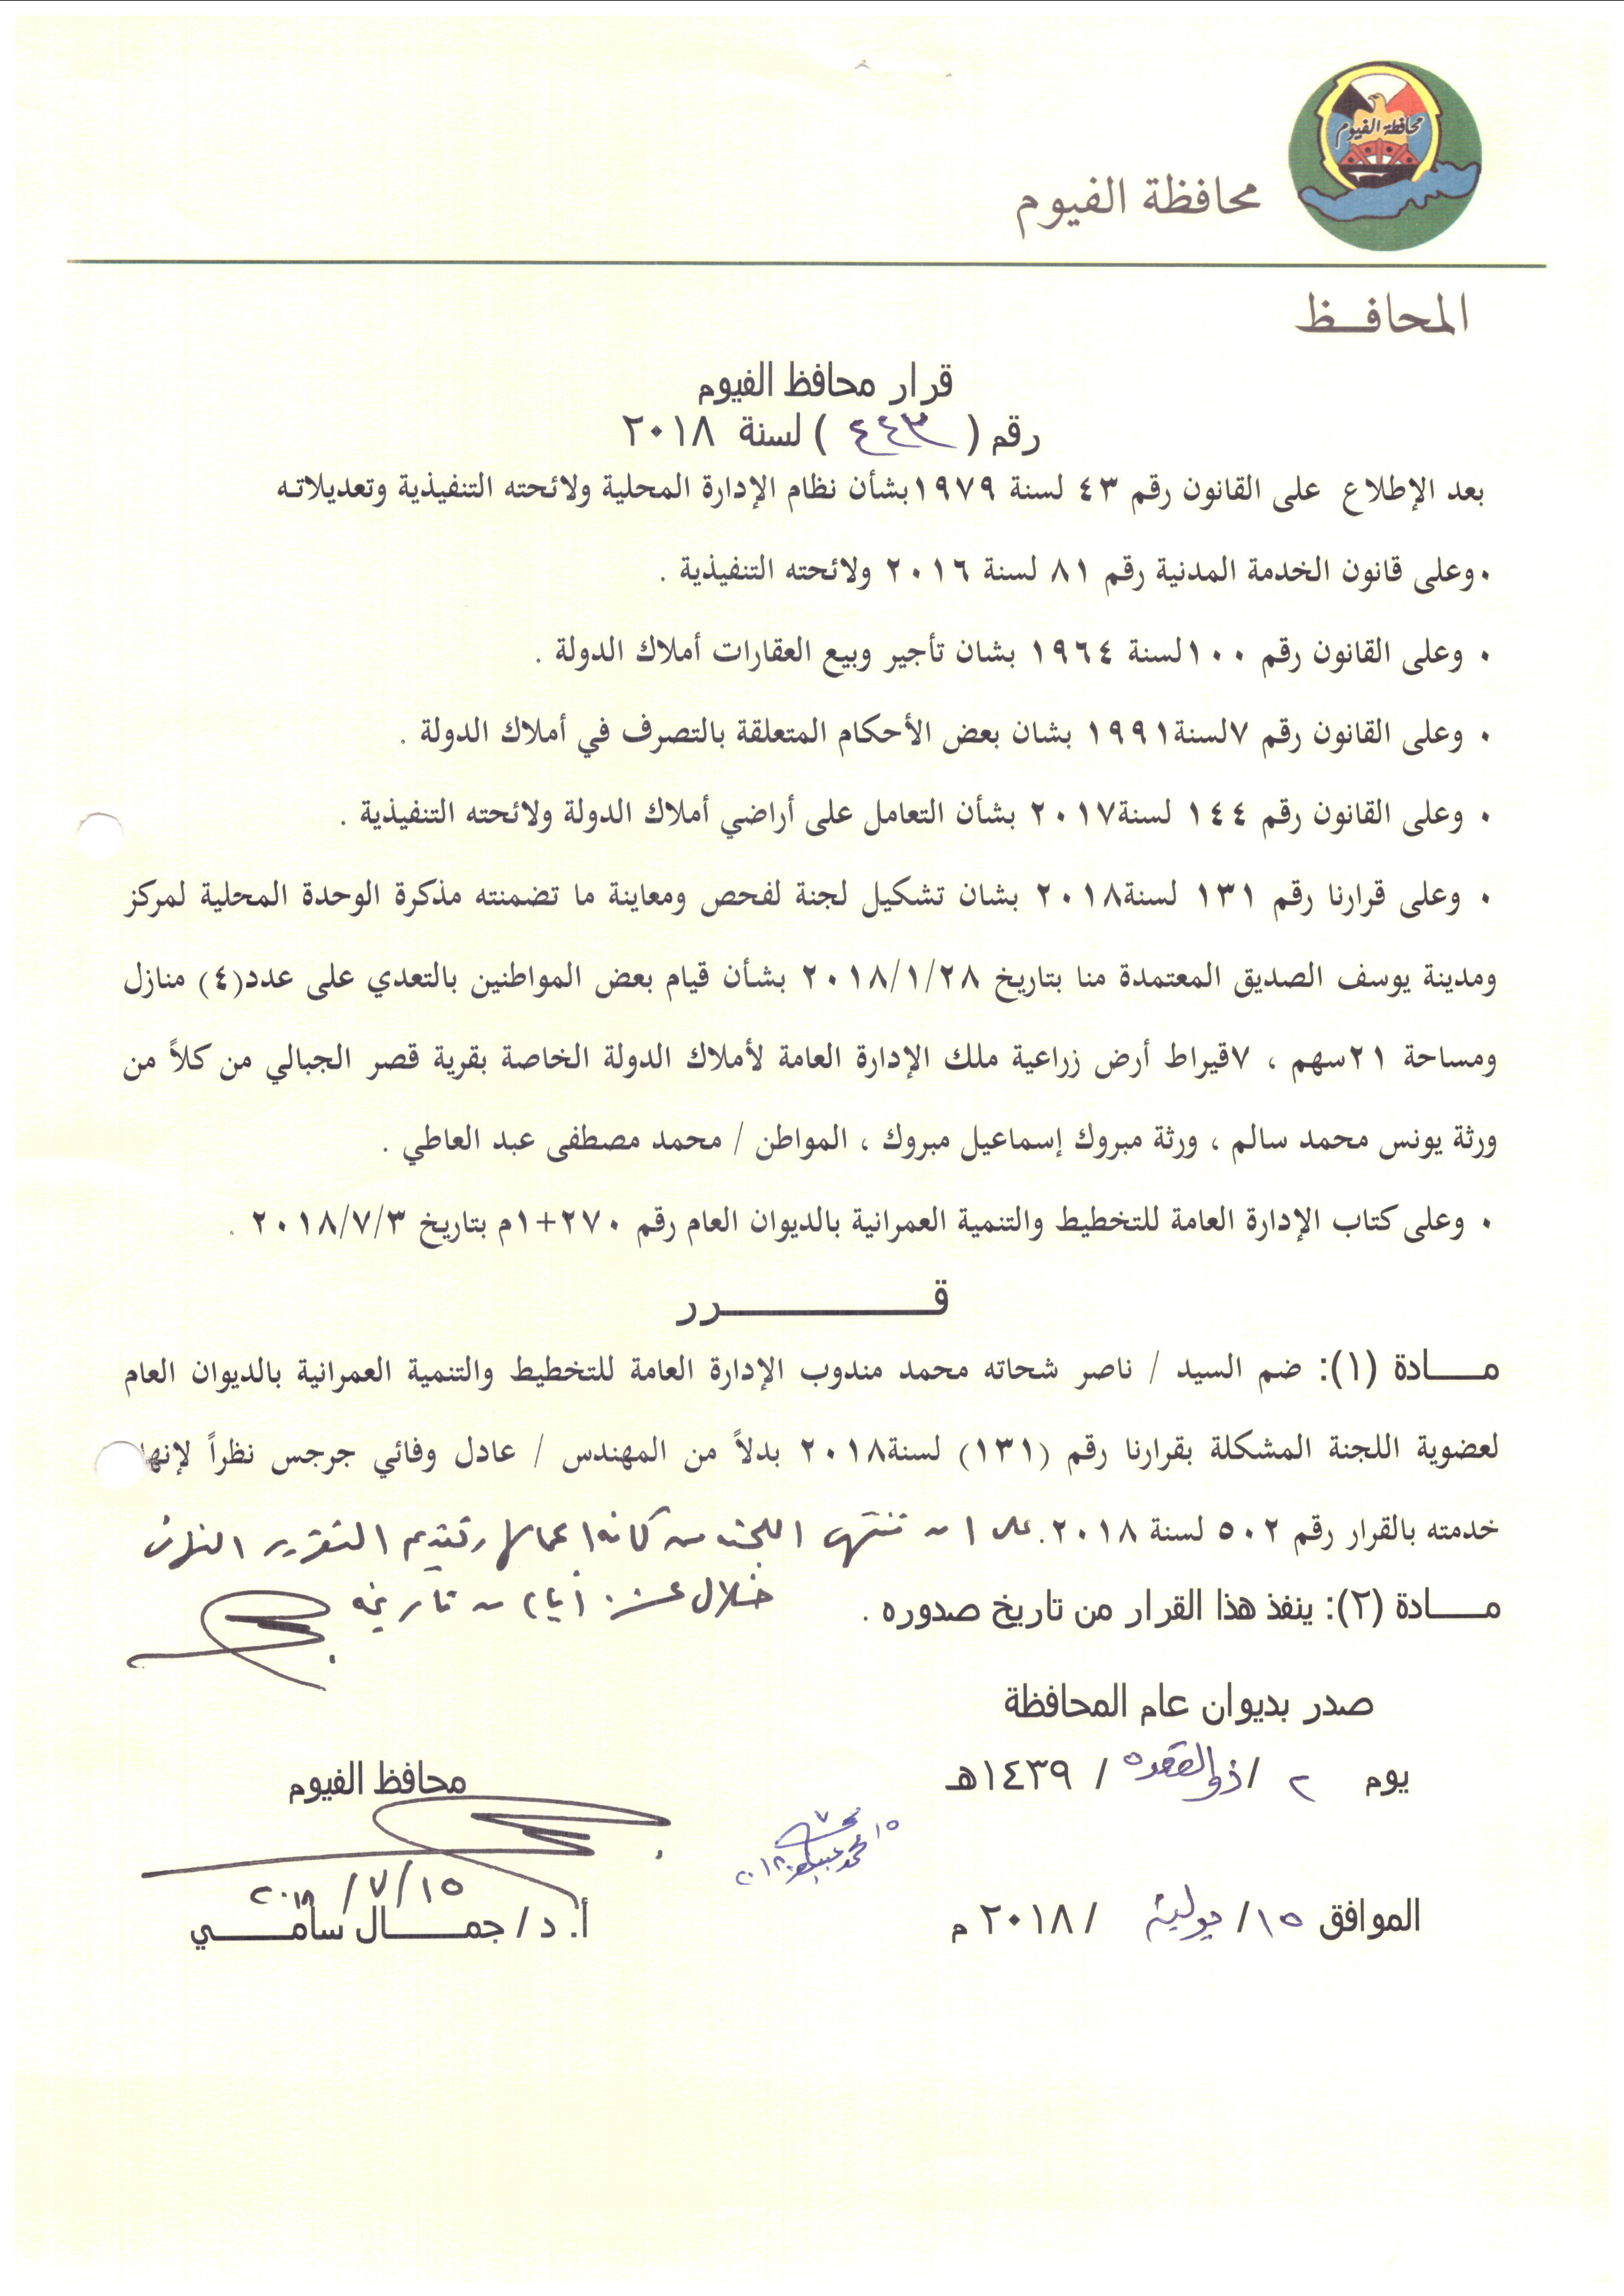 محافظة الفيوم
محافظة الفيوم
المحافــظ
قرار محافظ الفيوم
رقم ( ٤٤٣ ) لسنة ٢٠١٨
بعد الإطلاع على القانون رقم ٤٣ لسنة ١٩٧٩بشأن نظام الإدارة المحلية ولائحته التنفيذية وتعديلاته
• وعلى قانون الخدمة المدنية رقم ٨١ لسنة ٢٠١٦ ولائحته التنفيذية .
• وعلى القانون رقم ١٠٠لسنة ١٩٦٤ بشان تأجير وبيع العقارات أملاك الدولة .
• وعلى القانون رقم ٧لسنة١٩٩١ بشان بعض الأحكام المتعلقة بالتصرف في أملاك الدولة .
• وعلى القانون رقم ١٤٤ لسنة٢٠١٧ بشأن التعامل على أراضي أملاك الدولة ولائحته التنفيذية .
• وعلى قرارنا رقم ١٣١ لسنة٢٠١٨ بشان تشكيل لجنة لفحص ومعاينة ما تضمنته مذكرة الوحدة المحلية لمركز
ومدينة يوسف الصديق المعتمدة منا بتاريخ ٢٠١٨/١/٢٨ بشأن قيام بعض المواطنين بالتعدي على عدد(٤) منازل
ومساحة ٢١سهم ، ٧قيراط أرض زراعية ملك الإدارة العامة لأملاك الدولة الخاصة بقرية قصر الجبالي من كلاً من
ورثة يونس محمد سالم ، ورثة مبروك إسماعيل مبروك ، المواطن / محمد مصطفى عبد العاطي .
• وعلى كتاب الإدارة العامة للتخطيط والتنمية العمرانية بالديوان العام رقم ٢٧٠+١م بتاريخ ٢٠١٨/٧/٣ .
قـــــــــــرر
مـــادة (١): ضم السيد / ناصر شحاته محمد مندوب الإدارة العامة للتخطيط والتنمية العمرانية بالديوان العام
لعضوية اللجنة المشكلة بقرارنا رقم (١٣١) لسنة٢٠١٨ بدلاً من المهندس / عادل وفائي جرجس نظراً لإنها
خدمته بالقرار رقم ٥٠٢ لسنة ٢٠١٨. على ان تنتهى اللجنة من كافة اعمالها وتقديم التقرير
خلال عشرة أيام من تاريخه
مـــادة (٢): ينفذ هذا القرار من تاريخ صدوره .
صدر بديوان عام المحافظة
يوم ٢ / ذو القعده / ١٤٣٩هـ
محافظ الفيوم
١٥
٧
٢٠١٨
الموافق ١٥/ يولية / ٢٠١٨ م
٢٠١٨ /٧/١٥
أ. د/ جمـــال سامـــي